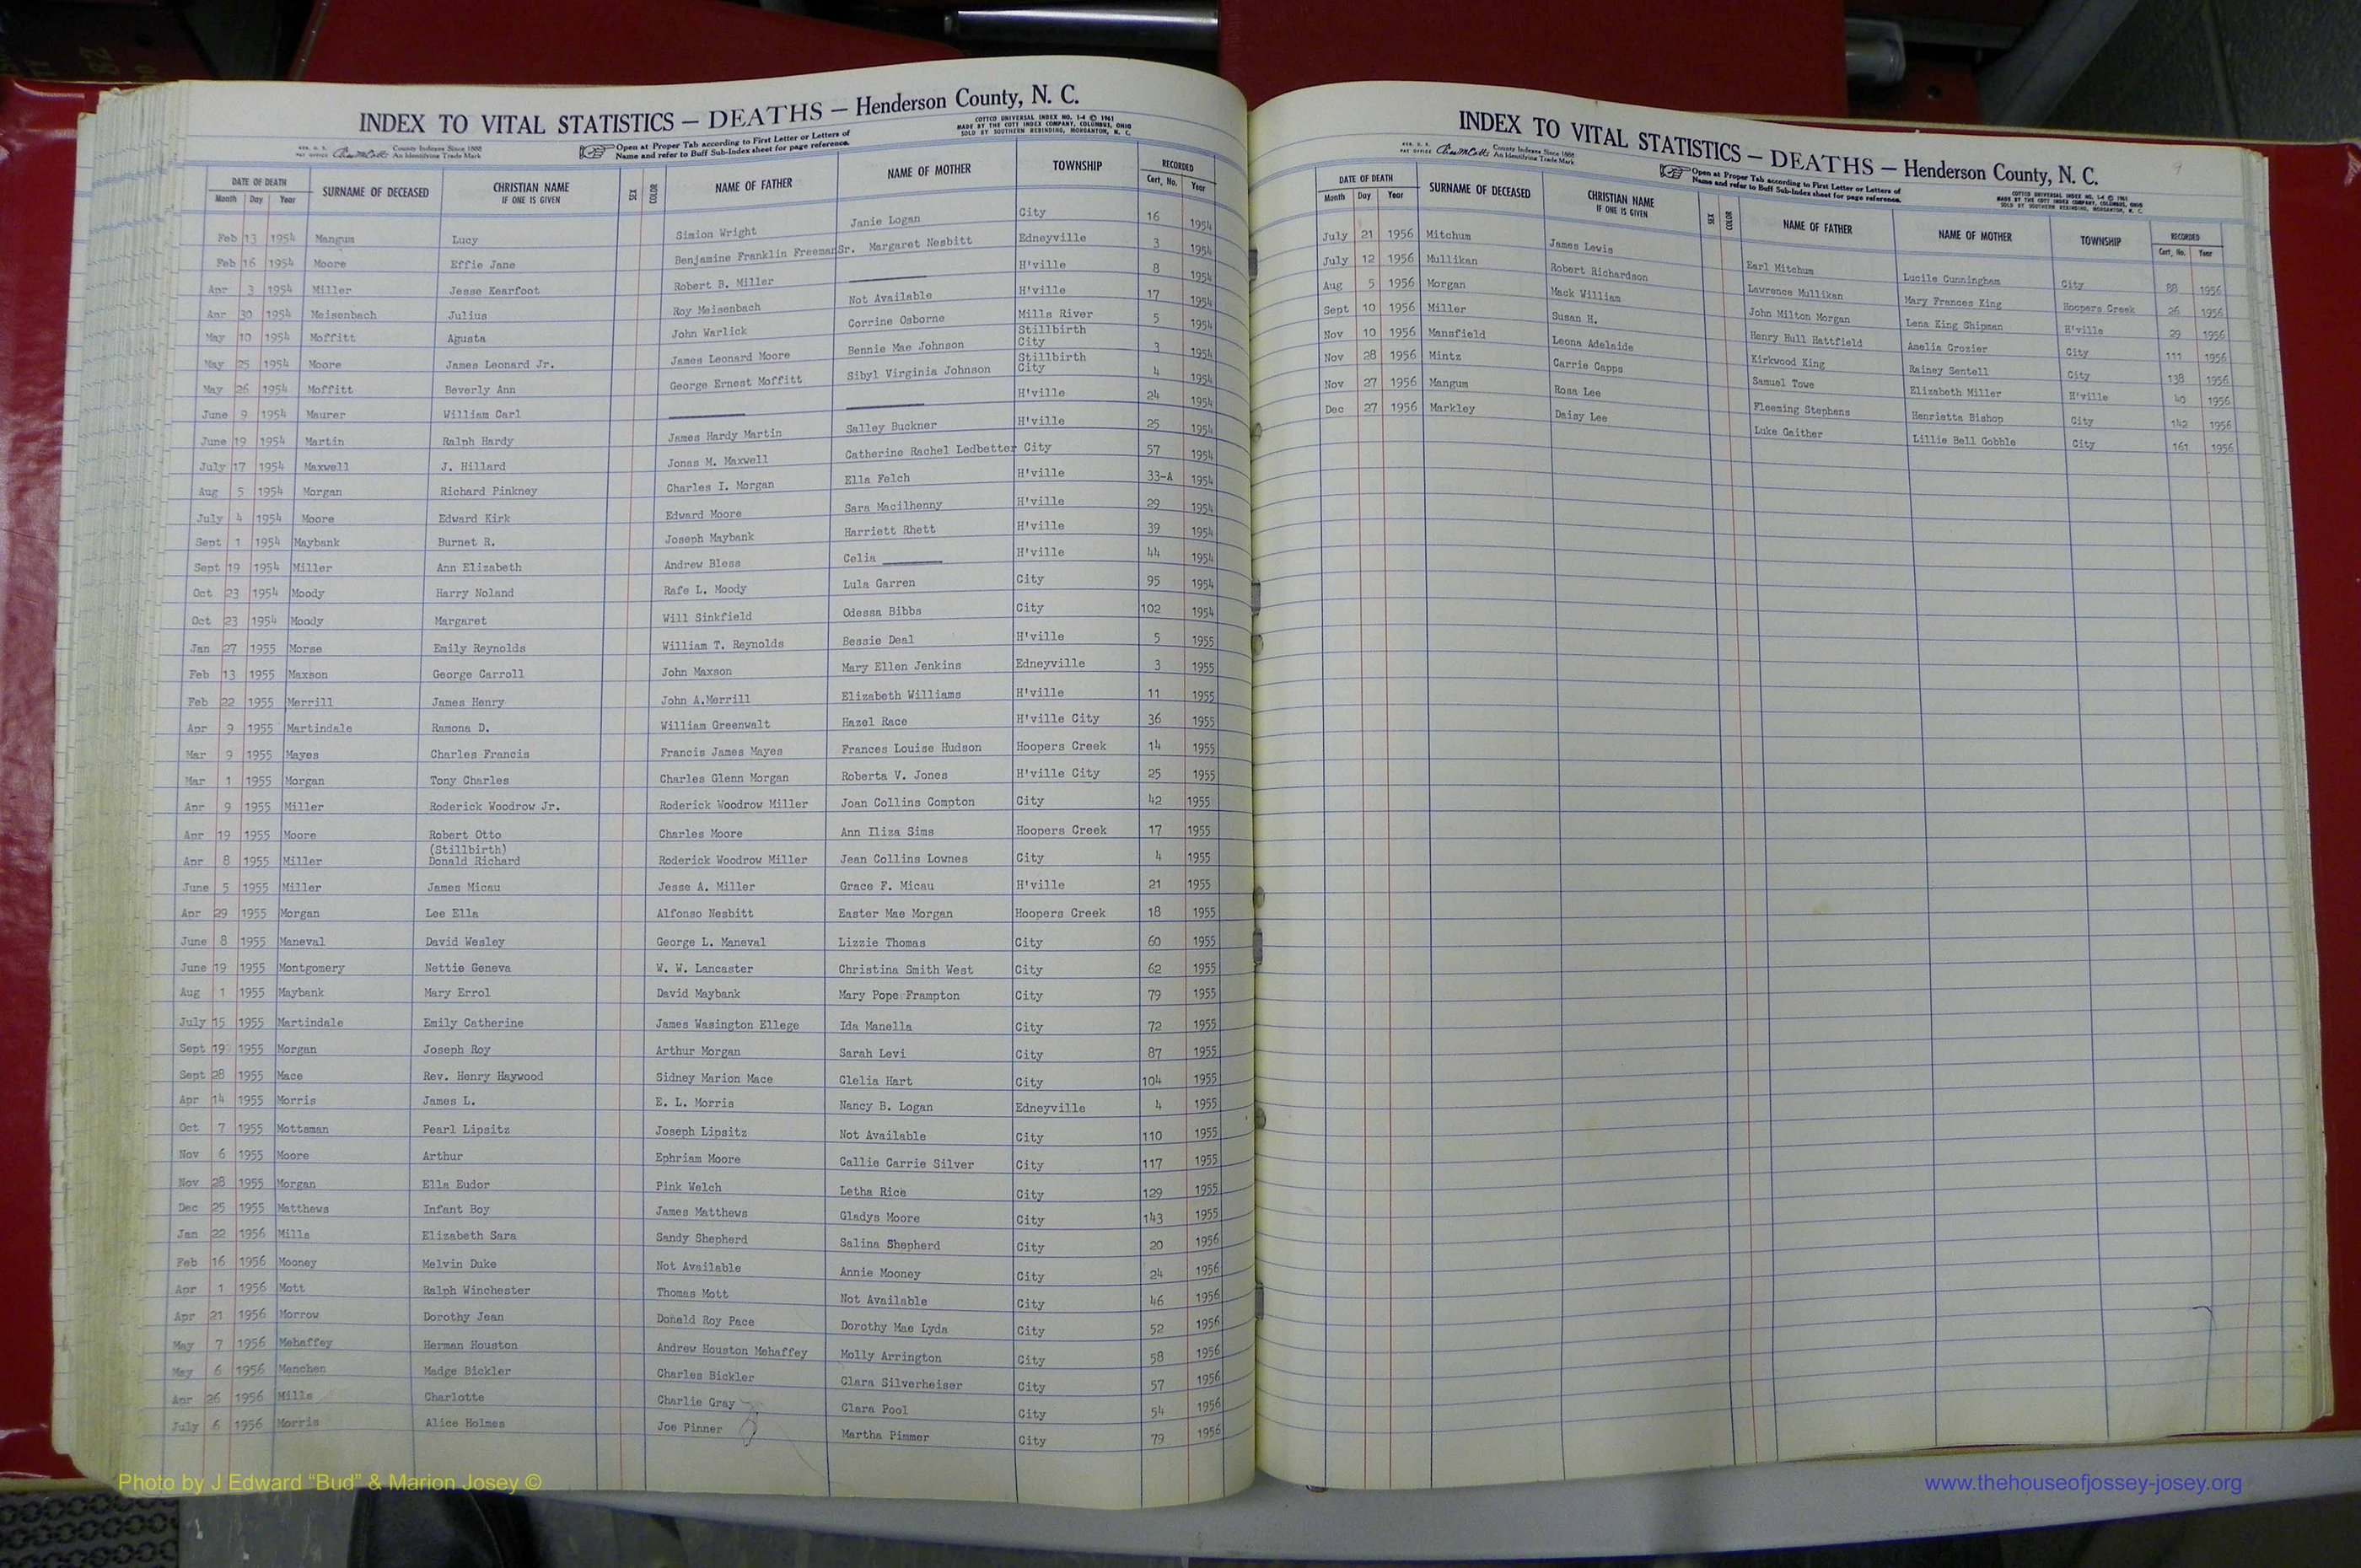 INDEX TO VITAL STATISTICS — DEATHS — Henderson County, N. C.
COTTCO UNIVERSAL INDEX NO. 1-4 © 1961
MADE BY THE COTT INDEX COMPANY, COLUMBUS, OHIO
SOLD BY SOUTHERN REBINDING, MORGANTON, N. C.
County Indexes Since 1888
An Identifying Trade Mark
Open at Proper Tab according to First Letter or Letters of
Name and refer to Buff Sub-Index sheet for page reference.
DATE OF DEATH SURNAME OF DECEASED CHRISTIAN NAME IF ONE IS GIVEN SEX COLOR NAME OF FATHER NAME OF MOTHER TOWNSHIP RECORDED
Month Day Year Cert. No. Year
Feb 13 1954 Mangum Lucy Simion Wright Janie Logan City 16 1954
Feb 16 1954 Moore Effie Jane Benjamine Franklin Freeman Sr. Margaret Nesbitt Edneyville 3 1954
Apr 3 1954 Miller Jesse Kearfoot Robert B. Miller ———— H'ville 8 1954
Apr 30 1954 Meisenbach Julius Roy Meisenbach Not Available H'ville 17 1954
May 10 1954 Moffitt Agusta John Warlick Corrine Osborne Mills River 5 1954
May 25 1954 Moore James Leonard Jr. James Leonard Moore Bennie Mae Johnson Stillbirth City 3 1954
May 26 1954 Moffitt Beverly Ann George Ernest Moffitt Sibyl Virginia Johnson Stillbirth City 4 1954
June 9 1954 Maurer William Carl ———— ———— H'ville 24 1954
June 19 1954 Martin Ralph Hardy James Hardy Martin Salley Buckner H'ville 25 1954
July 17 1954 Maxwell J. Hillard Jonas M. Maxwell Catherine Rachel Ledbetter City 57 1954
Aug 5 1954 Morgan Richard Pinkney Charles I. Morgan Ella Felch H'ville 33-A 1954
July 4 1954 Moore Edward Kirk Edward Moore Sara Macilhenny H'ville 29 1954
Sept 1 1954 Maybank Burnet R. Joseph Maybank Harriett Rhett H'ville 39 1954
Sept 19 1954 Miller Ann Elizabeth Andrew Bless Celia ———— H'ville 44 1954
Oct 23 1954 Moody Harry Noland Rafe L. Moody Lula Garren City 95 1954
Oct 23 1954 Moody Margaret Will Sinkfield Odessa Bibbs City 102 1954
Jan 27 1955 Morse Emily Reynolds William T. Reynolds Bessie Deal H'ville 5 1955
Feb 13 1955 Maxson George Carroll John Maxson Mary Ellen Jenkins Edneyville 3 1955
Feb 22 1955 Merrill James Henry John A.Merrill Elizabeth Williams H'ville 11 1955
Apr 9 1955 Martindale Ramona D. William Greenwalt Hazel Race H'ville City 36 1955
Mar 9 1955 Mayes Charles Francis Francis James Mayes Frances Louise Hudson Hoopers Creek 14 1955
Mar 1 1955 Morgan Tony Charles Charles Glenn Morgan Roberta V. Jones H'ville City 25 1955
Apr 9 1955 Miller Roderick Woodrow Jr. Roderick Woodrow Miller Joan Collins Compton City 42 1955
Apr 19 1955 Moore Robert Otto Charles Moore Ann Iliza Sims Hoopers Creek 17 1955
(Stillbirth)
Apr 8 1955 Miller Donald Richard Roderick Woodrow Miller Jean Collins Lownes City 4 1955
June 5 1955 Miller James Micau Jesse A. Miller Grace F. Micau H'ville 21 1955
Apr 29 1955 Morgan Lee Ella Alfonso Nesbitt Easter Mae Morgan Hoopers Creek 18 1955
June 8 1955 Maneval David Wesley George L. Maneval Lizzie Thomas City 60 1955
June 19 1955 Montgomery Nettie Geneva W. W. Lancaster Christina Smith West City 62 1955
Aug 1 1955 Maybank Mary Errol David Maybank Mary Pope Frampton City 79 1955
July 15 1955 Martindale Emily Catherine James Wasington Ellege Ida Manella City 72 1955
Sept 19 1955 Morgan Joseph Roy Arthur Morgan Sarah Levi City 87 1955
Sept 28 1955 Mace Rev. Henry Haywood Sidney Marion Mace Clelia Hart City 104 1955
Apr 14 1955 Morris James L. E. L. Morris Nancy B. Logan Edneyville 4 1955
Oct 7 1955 Mottsman Pearl Lipsitz Joseph Lipsitz Not Available City 110 1955
Nov 6 1955 Moore Arthur Ephriam Moore Callie Carrie Silver City 117 1955
Nov 28 1955 Morgan Ella Eudor Pink Welch Letha Rice City 129 1955
Dec 25 1955 Matthews Infant Boy James Matthews Gladys Moore City 143 1955
Jan 22 1956 Mills Elizabeth Sara Sandy Shepherd Salina Shepherd City 20 1956
Feb 16 1956 Mooney Melvin Duke Not Available Annie Mooney City 24 1956
Apr 1 1956 Mott Ralph Winchester Thomas Mott Not Available City 46 1956
Apr 21 1956 Morrow Dorothy Jean Donald Roy Pace Dorothy Mae Lyda City 52 1956
May 7 1956 Mehaffey Herman Houston Andrew Houston Mehaffey Molly Arrington City 58 1956
May 6 1956 Menchen Madge Bickler Charles Bickler Clara Silverheiser City 57 1956
Apr 26 1956 Mills Charlotte Charlie Gray Clara Pool City 54 1956
July 6 1956 Morris Alice Holmes Joe Pinner Martha Pimmer City 79 1956
INDEX TO VITAL STATISTICS — DEATHS — Henderson County, N. C.
9
County Indexes Since 1888
An Identifying Trade Mark
Open at Proper Tab according to First Letter or Letters of
Name and refer to Buff Sub-Index sheet for page reference.
COTTCO UNIVERSAL INDEX NO. 1-4 © 1961
MADE BY THE COTT INDEX COMPANY, COLUMBUS, OHIO
SOLD BY SOUTHERN REBINDING, MORGANTON, N. C.
DATE OF DEATH SURNAME OF DECEASED CHRISTIAN NAME IF ONE IS GIVEN SEX COLOR NAME OF FATHER NAME OF MOTHER TOWNSHIP RECORDED
Month Day Year Cert. No. Year
July 21 1956 Mitchum James Lewis Earl Mitchum Lucile Cunningham City 88 1956
July 12 1956 Mullikan Robert Richardson Lawrence Mullikan Mary Frances King Hoopers Creek 26 1956
Aug 5 1956 Morgan Mack William John Milton Morgan Lena King Shipman H'ville 29 1956
Sept 10 1956 Miller Susan H. Henry Hull Hattfield Amelia Crozier City 111 1956
Nov 10 1956 Mansfield Leona Adelaide Kirkwood King Rainey Sentell City 138 1956
Nov 28 1956 Mintz Carrie Capps Samuel Towe Elizabeth Miller H'ville 40 1956
Nov 27 1956 Mangum Rosa Lee Fleeming Stephens Henrietta Bishop City 142 1956
Dec 27 1956 Markley Daisy Lee Luke Gaither Lillie Bell Gobble City 161 1956
Photo by J Edward “Bud” & Marion Josey ©
www.thehouseofjossey-josey.org